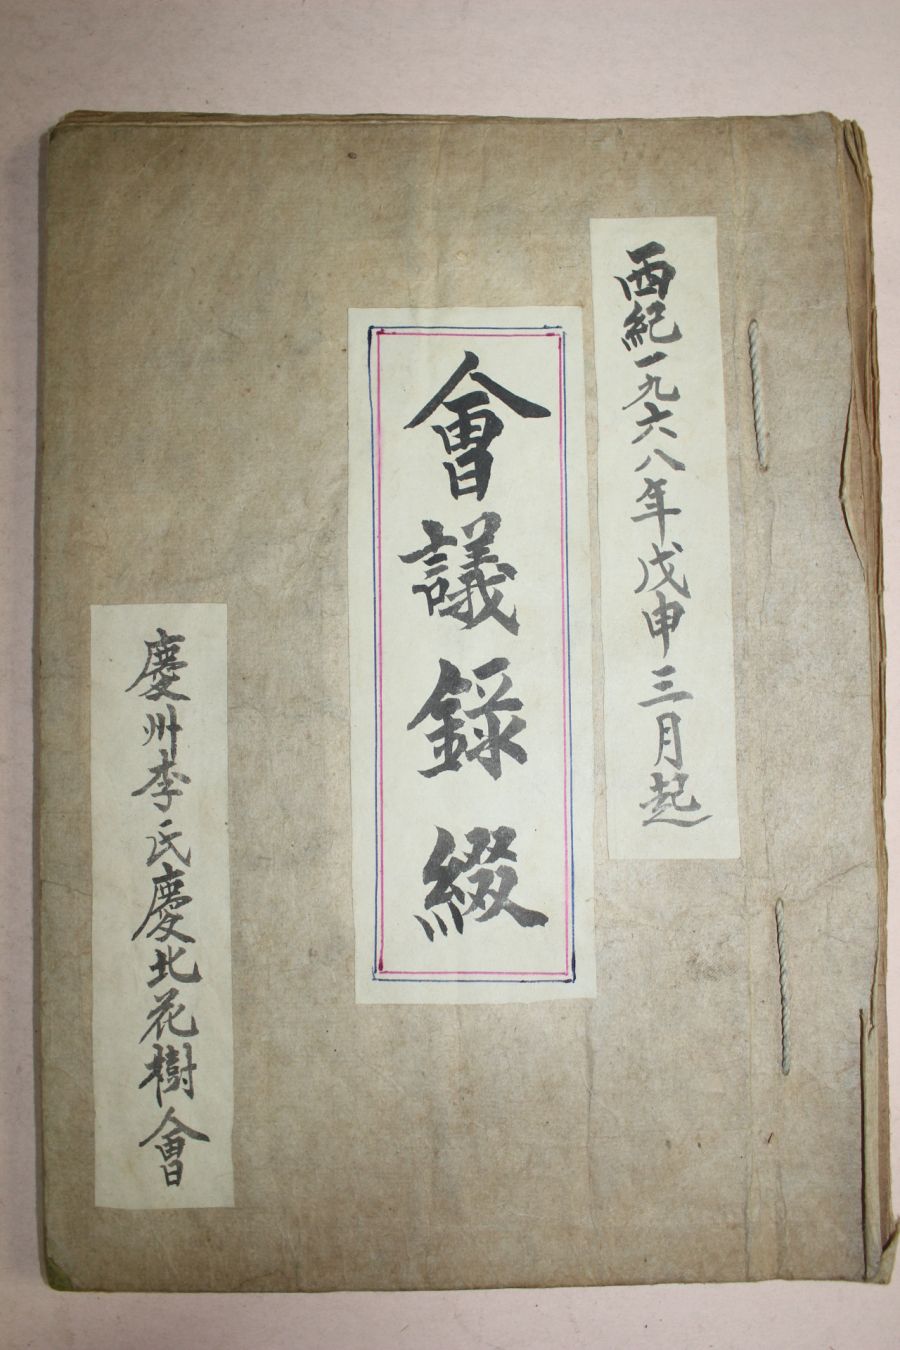 西紀一九六八年戊申三月起
會議錄綴
慶州李氏慶北花樹會